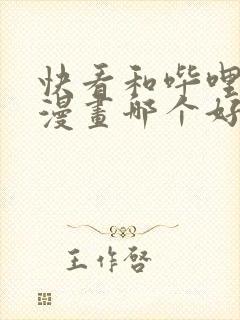 快看和哔哩
漫畫哪个好
王作啓